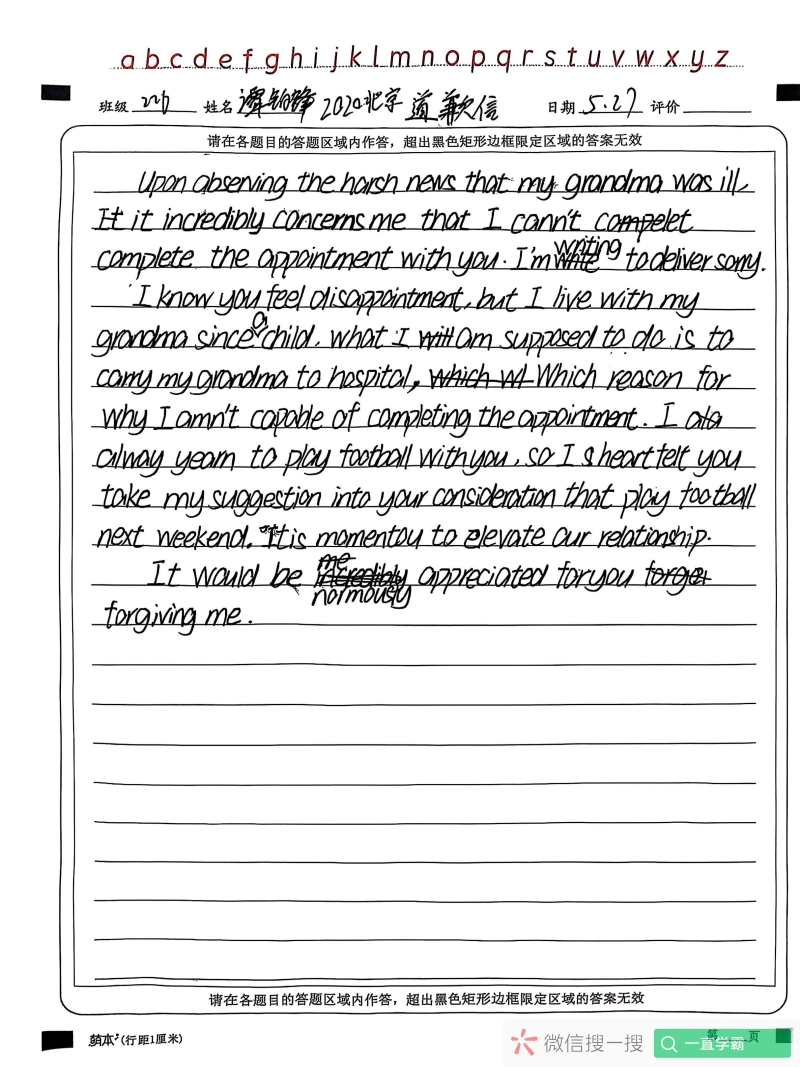 a b c d e f g h i j k l m n o p q r s t u v w x y z
班级 姓名 道歉信 日期 5.27 评价
请在各题目的答题区域内作答，超出黑色矩形边框限定区域的答案无效
Upon observing the harsh news that my grandma was ill,
It it incredibly concerns me that I cann't compelet
complete the appointment with you. I'm write writing to deliver sorry.
I know you feel disappointment, but I live with my
grandma since a child, what I will am supposed to do is to
carry my grandma to hospital, which wl Which reason for
why I amn't capable of completing the appointment. I ala
alway yearn to play football with you, so I s heartfelt you
take my suggestion into your consideration that play football
next weekend. It is momentou to elevate our relationship.
It would be incredibly me normously appreciated for you forget
forgiving me.
请在各题目的答题区域内作答，超出黑色矩形边框限定区域的答案无效
(行距1厘米)
第 页
微信搜一搜 一直学霸